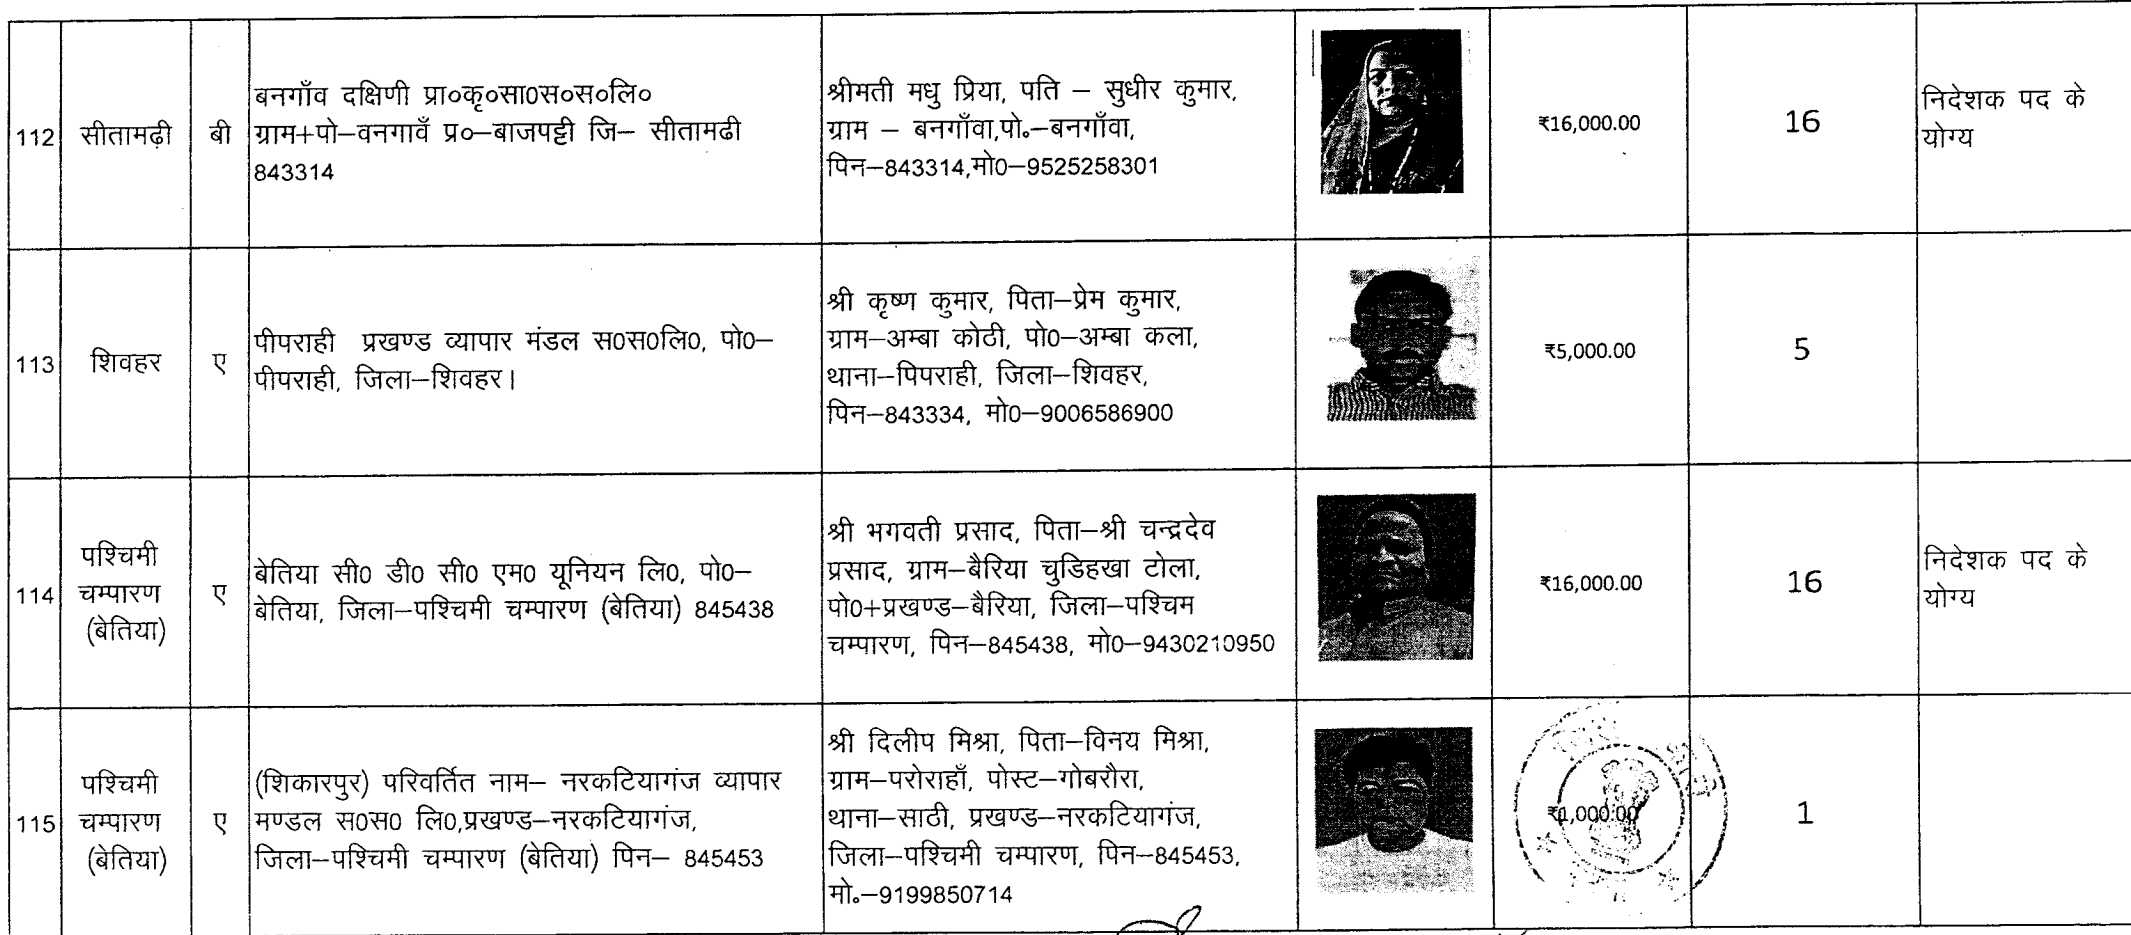 112
सीतामढ़ी
बी
बनगाँव दक्षिणी प्रा०कृ०सा0स०स०लि०
ग्राम+पो–वनगावँ प्र०–बाजपट्टी जि– सीतामढी
843314
श्रीमती मधु प्रिया, पति – सुधीर कुमार,
ग्राम – बनगाँवा,पो.–बनगाँवा,
पिन–843314,मो0–9525258301
₹16,000.00
16
निदेशक पद के
योग्य
113
शिवहर
ए
पीपराही प्रखण्ड व्यापार मंडल स0स0लि0, पो0–
पीपराही, जिला–शिवहर।
श्री कृष्ण कुमार, पिता–प्रेम कुमार,
ग्राम–अम्बा कोठी, पो0–अम्बा कला,
थाना–पिपराही, जिला–शिवहर,
पिन–843334, मो0–9006586900
₹5,000.00
5
114
पश्चिमी
चम्पारण
(बेतिया)
ए
बेतिया सी0 डी0 सी0 एम0 यूनियन लि0, पो0–
बेतिया, जिला–पश्चिमी चम्पारण (बेतिया) 845438
श्री भगवती प्रसाद, पिता–श्री चन्द्रदेव
प्रसाद, ग्राम–बैरिया चुडिहखा टोला,
पो0+प्रखण्ड–बैरिया, जिला–पश्चिम
चम्पारण, पिन–845438, मो0–9430210950
₹16,000.00
16
निदेशक पद के
योग्य
115
पश्चिमी
चम्पारण
(बेतिया)
ए
(शिकारपुर) परिवर्तित नाम– नरकटियागंज व्यापार
मण्डल स0स0 लि0,प्रखण्ड–नरकटियागंज,
जिला–पश्चिमी चम्पारण (बेतिया) पिन– 845453
श्री दिलीप मिश्रा, पिता–विनय मिश्रा,
ग्राम–परोराहाँ, पोस्ट–गोबरौरा,
थाना–साठी, प्रखण्ड–नरकटियागंज,
जिला–पश्चिमी चम्पारण, पिन–845453,
मो.–9199850714
₹1,000.00
1